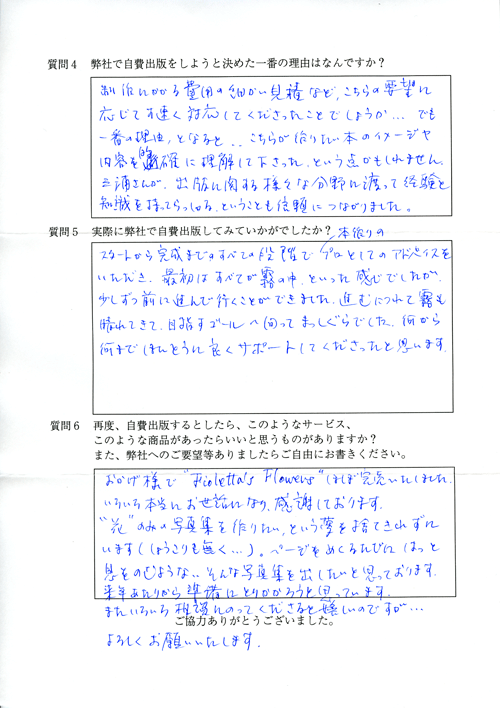 質問4 弊社で自費出版をしようと決めた一番の理由はなんですか?
制作にかかる費用の細かい見積など、こちらの要望に
応じて素速く対応してくださったことでしょうか… でも
一番の理由、となると.. こちらが作りたい本のイメージや
内容を的確に理解して下さった、という点かもしれません。
三浦さんが、出版に関する様々な分野に渡って経験と
知識を持ってらっしゃる、ということも信頼につながりました。
質問5 実際に弊社で自費出版してみていかがでしたか?
本作りの
スタートから完成まですべての段階でプロとしてのアドバイスを
いただき、最初はすべてが霧の中、といった感じでしたが、
少しずつ前に進んで行くことができました。進むにつれて霧も
晴れてきて、目指すゴールへ向ってまっしぐらでした。何から
何までほんとうに良くサポートしてくださったと思います。
質問6 再度、自費出版するとしたら、このようなサービス、
このような商品があったらいいと思うものがありますか?
また、弊社へのご要望等ありましたらご自由にお書きください。
おかげ様で "Fioletta's Flowers" はほぼ完売いたしました。
いろいろ本当にお世話になり、感謝しております。
"花" のみの写真集を作りたい、という夢を捨てきれずに
います(しょうこりも無く…)。ページをめくるたびにはっと
息をのむような.. そんな写真集を出したいと思っております。
来年あたりから準備にとりかかろうと思っています。
またいろいろ相談にのってくださると嬉しいのですが…
ご協力ありがとうございました。
よろしくお願いいたします。